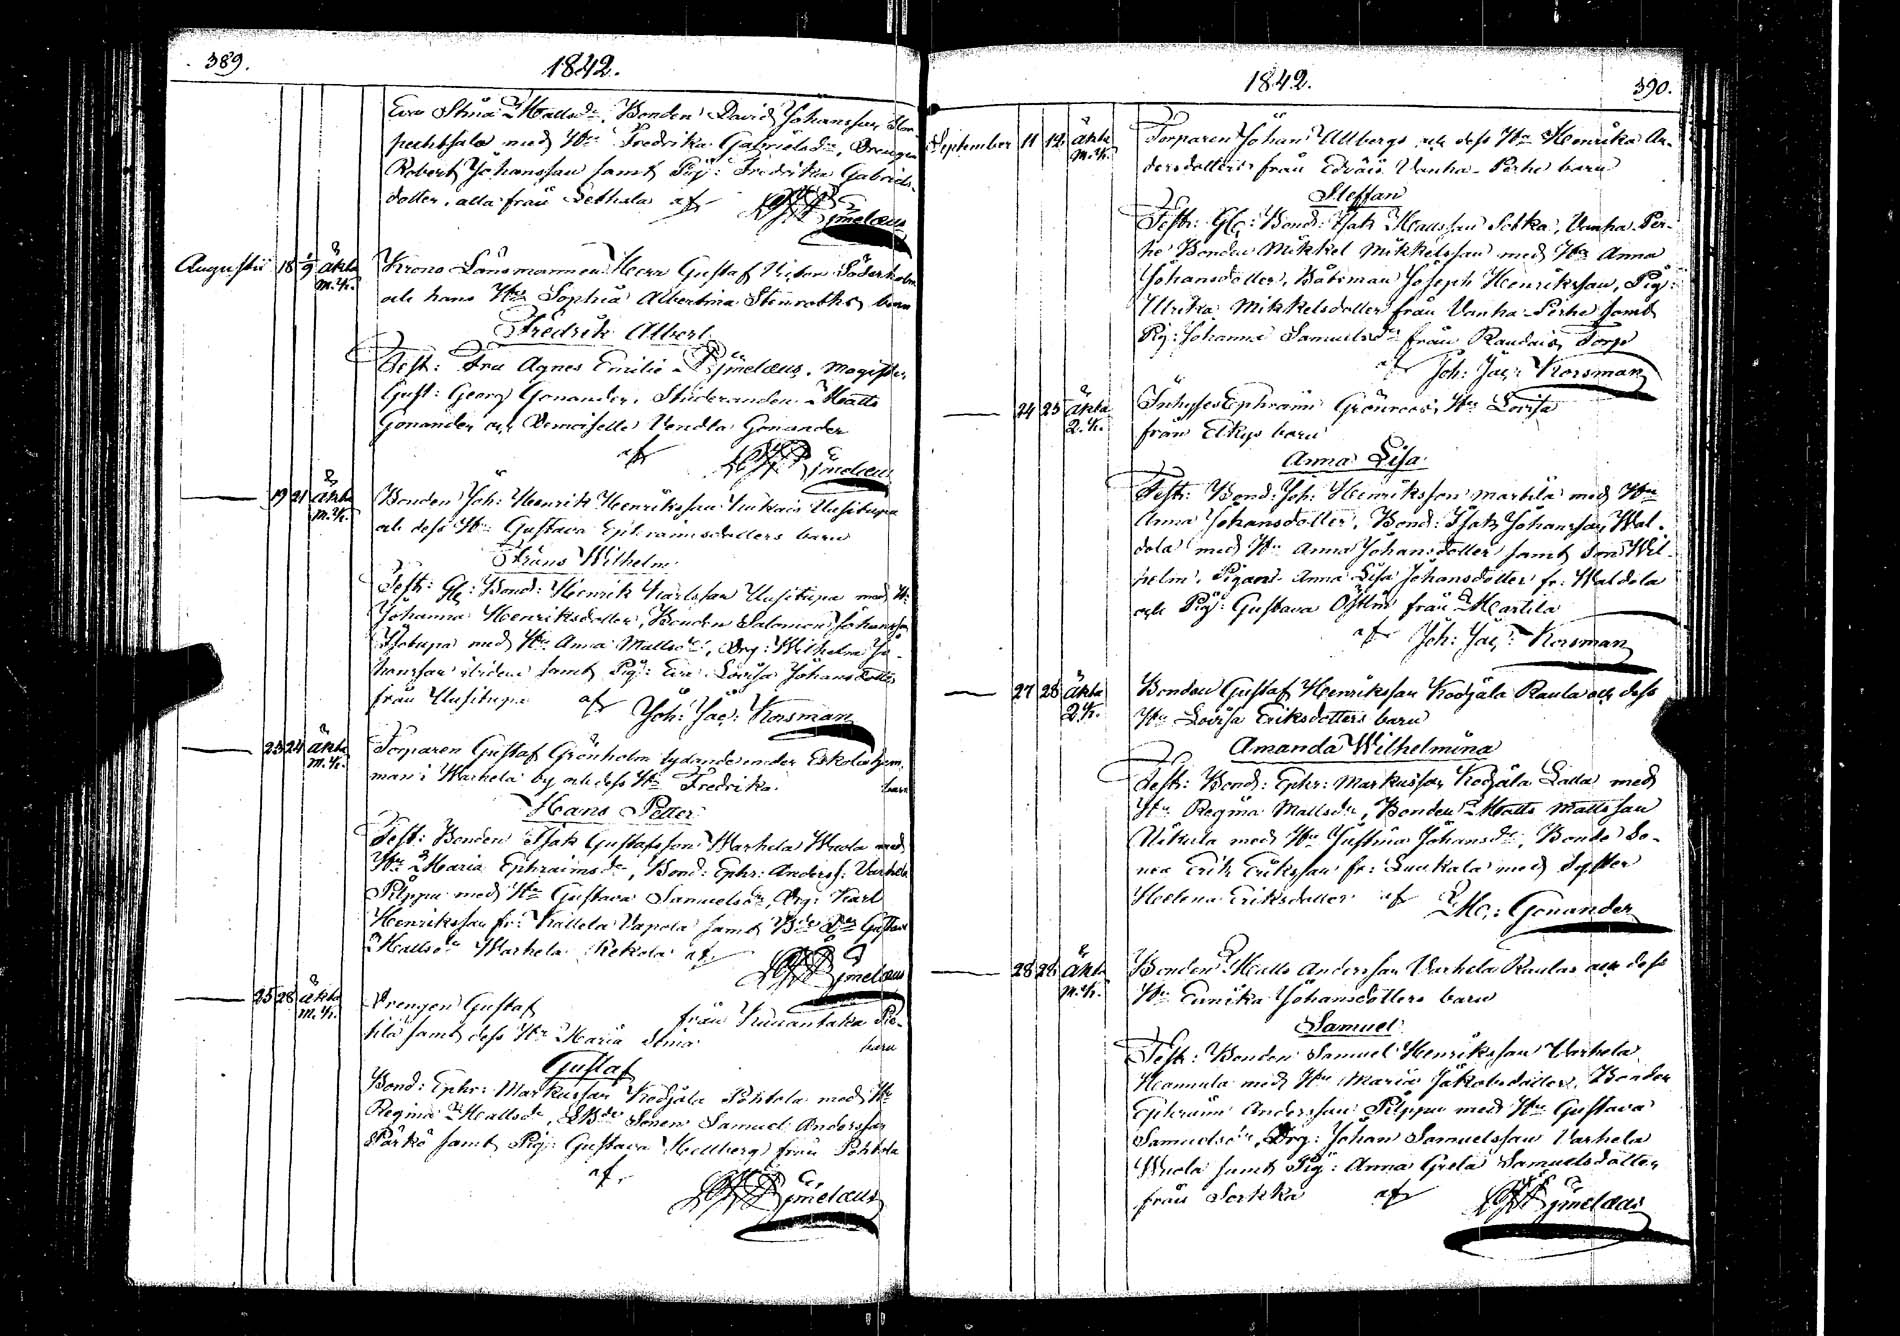 389.
1842.
Eva Stina Mattsdr, Bonden David Johansson
med Hu Fredrika Gabrielsdr, Drengen
Robert Johansson samt Pig: Fredrika Gabriels-
dotter, alla från Sethala af
Augusti 18 1/9 äkta m.k. Krono Länsmannen Herr Gustaf Victor Söderholm
och hans Hu Sophia Albertina Stenroths barn
Fredrik Albert
Test: Fru Agnes Emilie Rjmelæus, Magister
Gust: Georg Gonander, Studeranden Matts
Gonander och Demoiselle Vendla Gonander
af Rjmelæus
19 21 äkta m.k. Bonden Joh: Henrik Henriksson Uusitupa
och dess Hu Gustava Ephraimsdotters barn
Frans Wilhelm
Test: Bond: Henrik Karlsson Uusitupa med H:
Johanna Henriksdotter, Bonden Salomon Johansson
Isotupa med Hu Anna Mattsdr, Drg: Wilhelm Jo-
hansson samt Pig: Eva Lovisa Johansdotter
från Uusitupa af Joh: Jac: Korsman
23 24 äkta m.k. Torparen Gustaf Grönholm lydande under Eskola hem-
man i Warhela by och dess Hu Fredrika barn
Hans Petter
Test: Bonden Isak Gustafsson Warhela med
Hu Maria Ephraimsdr, Bond: Ephr: Anders: Varhela
Pilppu med Hu Gustava Samuelsdr, Drg: Karl
Henriksson fr: Kallela Vapola samt Gustava
Mattsdr Warhela Rekola af Rjmelæus
25 28 äkta m.k. Drengen Gustaf från
samt dess Hu Maria Stina barn
Gustaf
Bond: Ephr: Markusson Kodjala Pohtola med Hu
Regina Mattsdr, Sonen Samuel Andersson
Pärkö samt Pig: Gustava Hellberg från Pohtola
af Rjmelæus
1842.
390.
September 11 12 äkta m.k. Torparen Johan Ahlbergs och dess Hu Henrika An-
dersdotters från Vanha-Perhe barn
Steffan
Test: Bond: Isak Mattsson Sotka, Vanha Per-
he Bonden Mikkel Mikkelsson med Hu Anna
Johansdotter, Båtsman Joseph Henriksson, Pig:
Ulrika Mikkelsdotter från Vanha-Perhe samt
Pig: Johanna Samuelsdr från Torp
af Joh: Jac: Korsman
24 25 äkta 2.k. Inhyses Ephraim Grönroos, Hu Lovisa
från barn
Anna Lisa
Test: Bond: Joh: Henriksson Martila med Hu
Anna Johansdotter, Bond: Isak Johansson Wal-
dola med Hu Anna Johansdotter samt son Wil-
helm, Pigan Anna Lisa Johansdotter fr: Waldola
och Pig: Gustava Östlin från Martila
af Joh: Jac: Korsman
27 28 äkta 2.k. Bonden Gustaf Henriksson Kodjala Raula och dess
Hu Lovisa Eriksdotters barn
Amanda Wilhelmina
Test: Bond: Ephr: Markusson Kodjala Lalla med
Hu Regina Mattsdr, Bonden Matts Mattsson
Uikula med Hu Justina Johansdr, Bonde So-
nen Erik Eriksson fr: med syster
Helena Eriksdotter af M.: Gonander
28 28 äkta m.k. Bonden Matts Andersson Varhela Raulas och dess
Hu Eunika Johansdotters barn
Samuel
Test: Bonden Samuel Henriksson Varhela
Hannula med Hu Maria Jakobsdotter, Bonden
Ephraim Andersson Pilppu med Hu Gustava
Samuelsdr, Drg: Johan Samuelsson Varhela
samt Pig: Anna Greta Samuelsdotter
från Sorkka af Rjmelæus